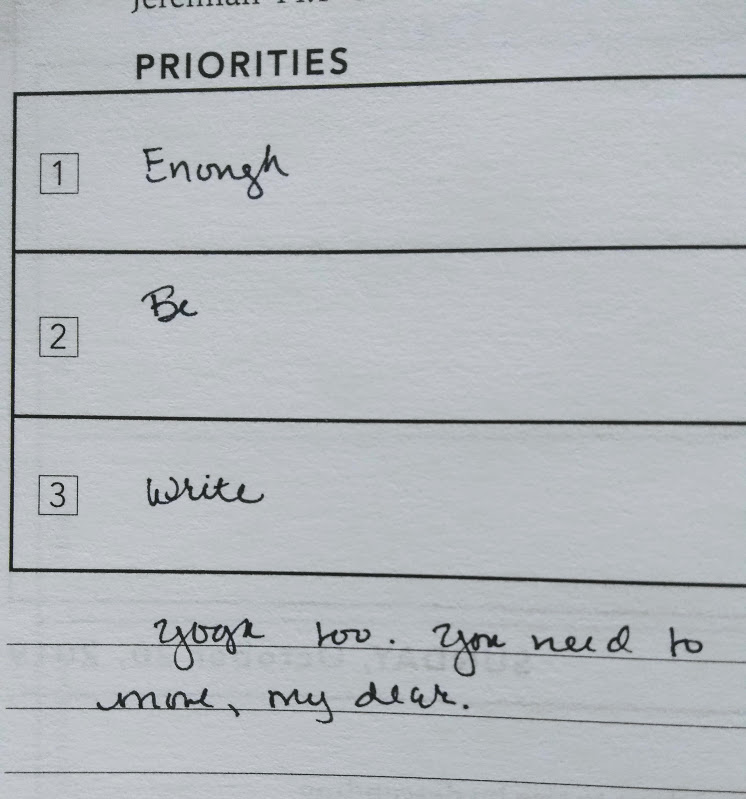 PRIORITIES
1 Enough
2 Be
3 Write
yoga too. you need to
move, my dear.